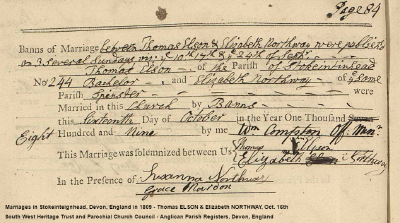 Page 84
Banns of Marriage between Thomas Elson & Elizabeth Northway were publish'd
on 3 several Sundays viz: 10th 17th & 24th of Septr.
Thomas Elson of the Parish of Stokeinteinhead
No 244 Bachelor and Elizabeth Northway of ye same
Parish Spinster were
Married in this Church by Banns
this Sixteenth Day of October in the Year One Thousand
Eight Hundred and Nine by me Wm Compton Off. Minr.
This Marriage was solemnized between Us Thomas Elson
Elizabeth Northway
In the Presence of Susanna Northway
Grace
Marriages in Stokeinteignhead, Devon, England in 1809 - Thomas ELSON & Elizabeth NORTHWAY, Oct. 16th
South West Heritage Trust and Parochial Church Council - Anglican Parish Registers, Devon, England